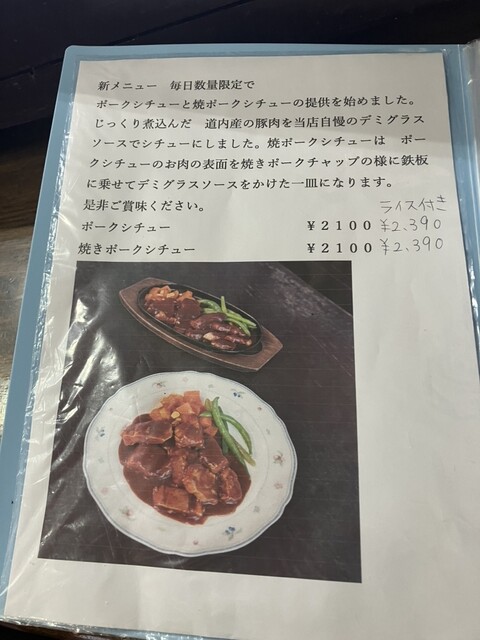 新メニュー　毎日数量限定で
ポークシチューと焼ポークシチューの提供を始めました。
じっくり煮込んだ　道内産の豚肉を当店自慢のデミグラス
ソースでシチューにしました。焼ポークシチューは　ポー
クシチューのお肉の表面を焼きポークチャップの様に鉄板
に乗せてデミグラスソースをかけた一皿になります。
是非ご賞味ください。
ライス付き
ポークシチュー　￥２１００　¥2,390
焼きポークシチュー　￥２１００　¥2,390